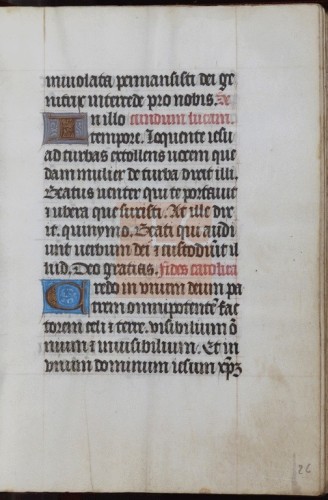 inuiolata permansisti dei ge
nitrix intercede pro nobis. Se
In illo cundum lucam.
tempore. Loquente iesu
ad turbas extollens uocem que
dam mulier de turba dixit illi.
Beatus uenter qui te portauit
⁊ ubera que suxisti. At ille dix
it. quinymo. Beati qui audi
unt uerbum dei ⁊ custodiūt il
lud. Deo gratias. fides catolica
Credo in vnum deum pa
trem omnipotentē fac
torem celi ⁊ terre. visibilium ō
nium ⁊ inuisibilium. Et in
vnum dominum iesum xp̄ȝ
26